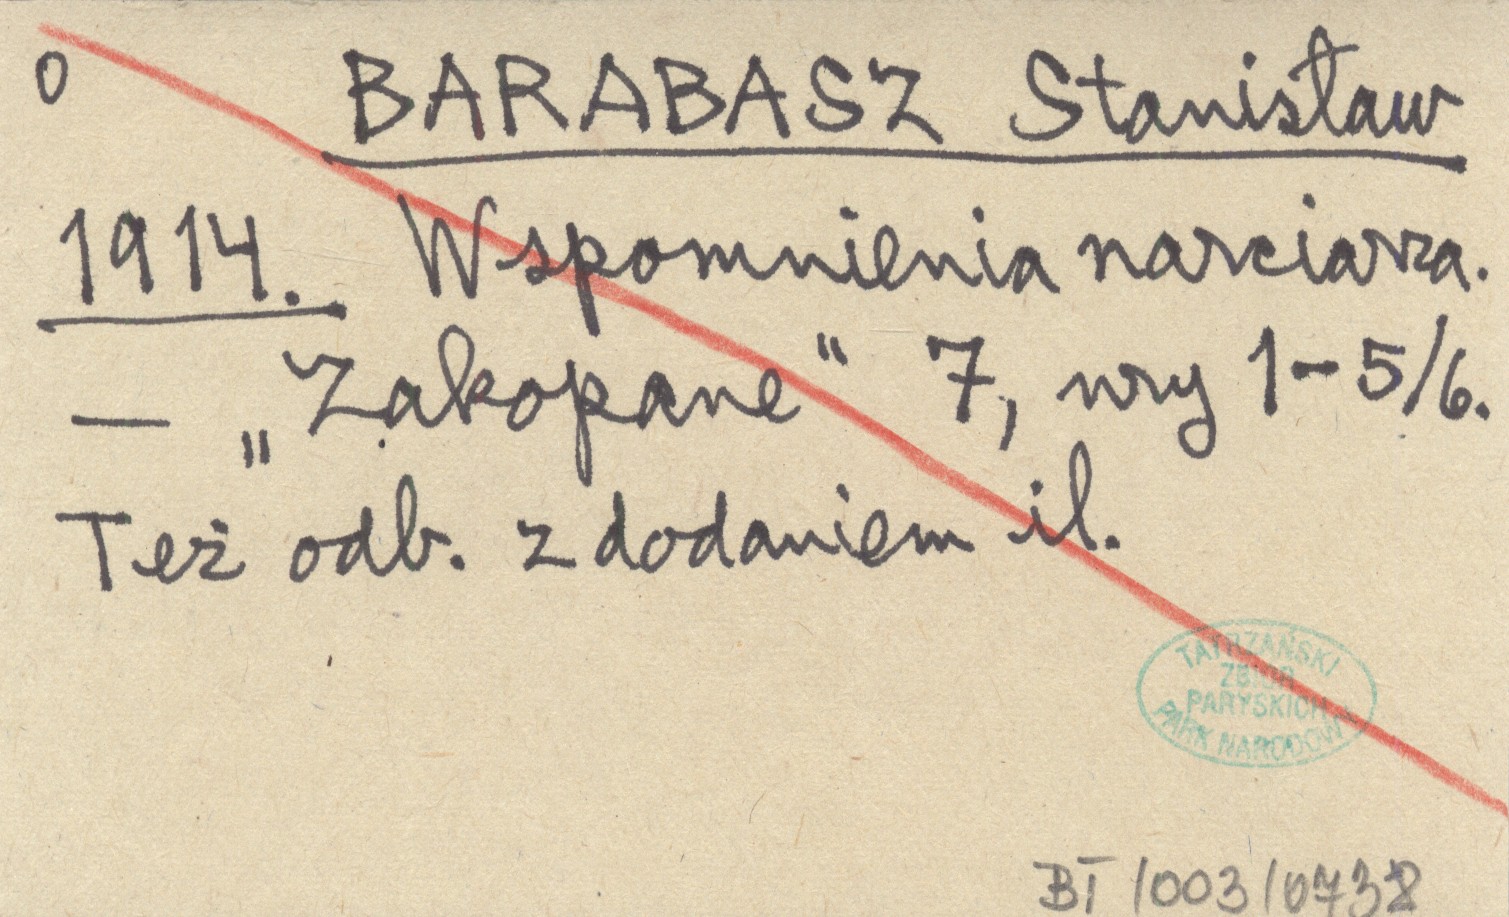 0 BARABASZ Stanisław
1914. Wspomnienia narciarza.
— „Zakopane" 7, nry 1-5/6.
Też odb. z dodaniem il.
TATRZAŃSKI
ZBIÓR
PARYSKICH
PARK NARODOWY
BT/003/0738